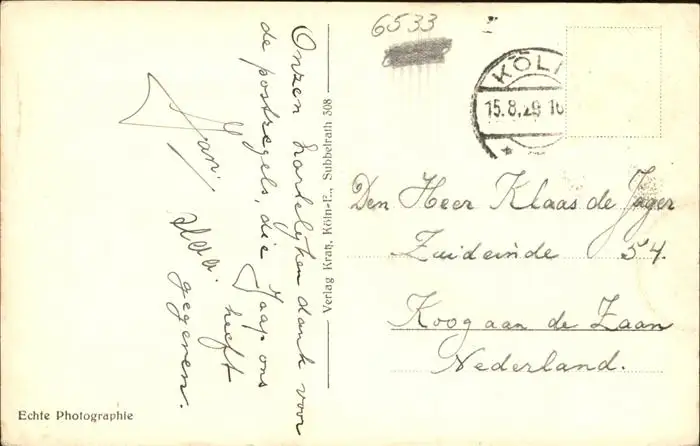 6533
KÖL
15.8.29 16
Onzen hartelyken dank voor
de postzegels, die Jaap ons
heeft
gegeven.
Jan.
Verlag Krah, Köln-E., Subbelrath 308
Den Heer Klaas de Jager
Zuideinde 54.
Koog aan de Zaan
Nederland.
Echte Photographie